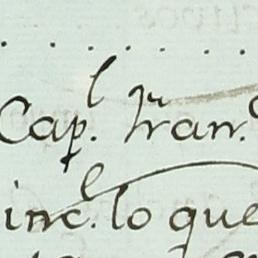 Cap.l Fran.
inc.e lo que